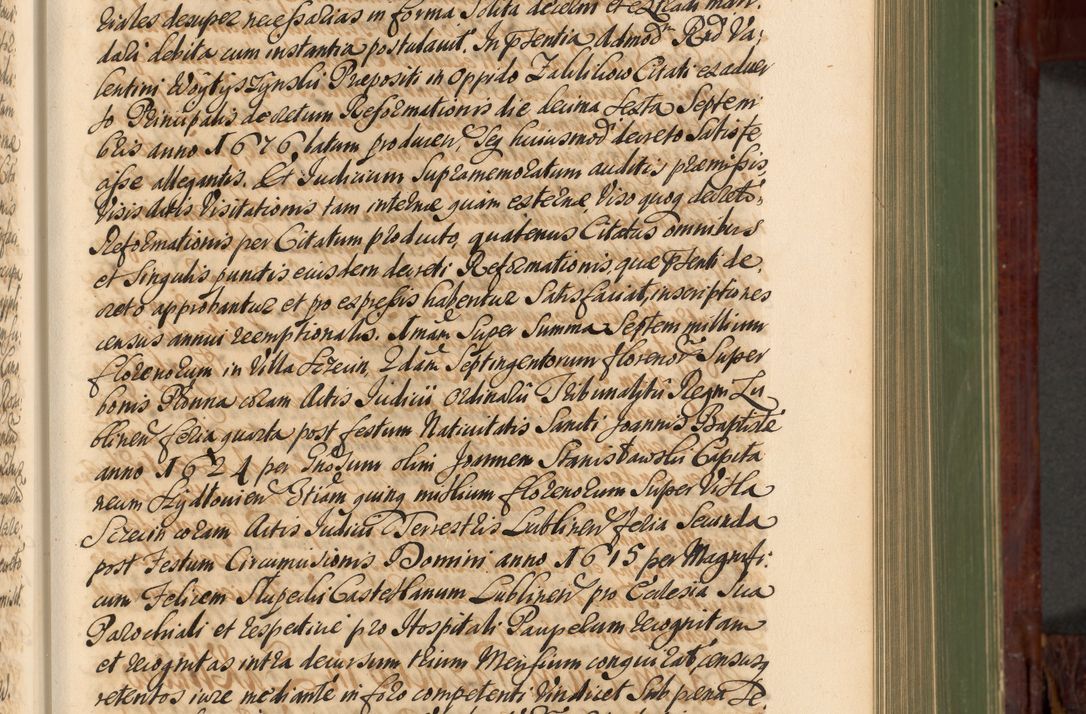 dati debita cum instantia postulavit. In pñtia Admod Rnd Va-
lentini Woytyszynski Præpositi in Oppido Zaklikow Citati ex adver
so Principalis decretum Reformationis die decima sexta Septem
bris anno 1676 latum producen, Seq huiusmod decreto Satisfe
cisse allegantis. Et Judicium Supramemoratum auditis præmissis,
Visis Actis Visitationis tam internæ quam externæ, Viso quoq decreto
Reformationis per Citatum producto, quatenus Citatus omnibus
et Singulis punctis eiusdem decreti Reformationis, quæ pñti de-
creto approbantur et pro expressis habentur Satisfaciat, inscriptiones
census annui reemptionalis. 1mam Super Summa Septem millium
florenorum in Villa Szczecin, 2dam Septingentorum floreno Super
bonis coram Actis Judicii Ordinarii Tribunalitii Regni Lu
blinen feria quarta post festum Nativitatis Sancti Joannis Baptistæ
anno 1624 per Gnosum olim Joannem Stanisławski Capita
neum Szydłovien Etiam quinq millium florenorum Super Villa
Szczecin coram Actis Judicii Terrestris Lublinen feria Secunda
post Festum Circumcisionis Domini anno 1615 per Magnifi-
cum Felicem Słupecki Castellanum Lublinen pro Ecclesia Sua
Parochiali et respective pro Hospitali Pauperum recognitam
et recognitas intra decursum trium Mensium conquirat, census
retentos iure mediante in foro competenti Vindicet Sub pæna